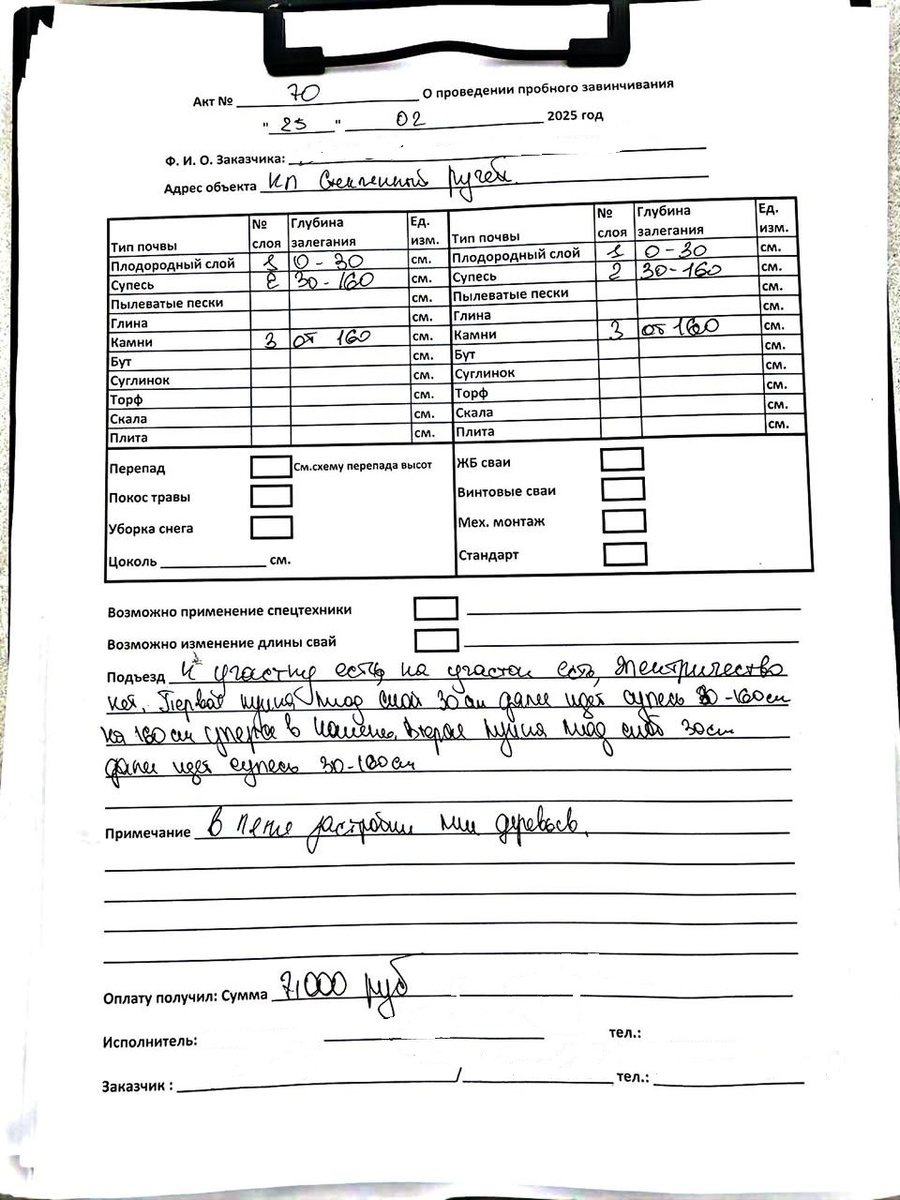 Акт № 70 О проведении пробного завинчивания
" 25 " 02 2025 год
Ф. И. О. Заказчика:
Адрес объекта КП ручей
Тип почвы № слоя Глубина залегания Ед. изм. Тип почвы № слоя Глубина залегания Ед. изм.
Плодородный слой 1 0-30 см. Плодородный слой 1 0-30 см.
Супесь 2 30-160 см. Супесь 2 30-160 см.
Пылеватые пески см. Пылеватые пески см.
Глина см. Глина см.
Камни 3 от 160 см. Камни 3 от 160 см.
Бут см. Бут см.
Суглинок см. Суглинок см.
Торф см. Торф см.
Скала см. Скала см.
Плита см. Плита см.
Перепад См.схему перепада высот ЖБ сваи
Покос травы Винтовые сваи
Уборка снега Мех. монтаж
Цоколь см. Стандарт
Возможно применение спецтехники
Возможно изменение длины свай
Подъезд К участку есть, на участок есть, электричество
нет. Первая плод слой 30 см далее идет супесь 30-160 см
на 160 см уперлся в камень. Вторая плод слой 30 см
далее идет супесь 30-160 см
Примечание В пятне застройки деревьев.
Оплату получил: Сумма 7,000 руб
Исполнитель: тел.:
Заказчик : / тел.: